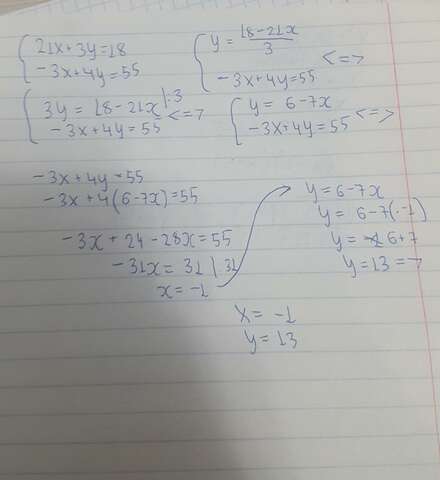 21x+3y=18
-3x+4y=55
3y = 18-21x |:3
-3x+4y=55 <=>
y = 18-21x
3
-3x+4y=55 <=>
y = 6-7x
-3x+4y=55 <=>
-3x+4y=55
-3x+4(6-7x)=55
-3x+24-28x=55
-31x = 31 |:31
x = -1
y=6-7x
y = 6-7(·-1)
y = 6+7
y=13 =>
x = -1
y = 13